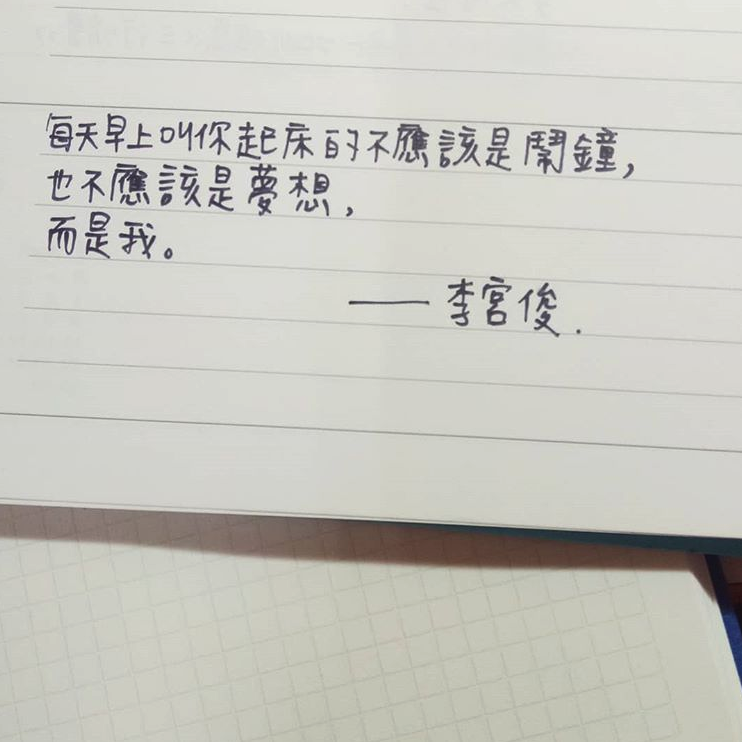 每天早上叫你起床的不應該是鬧鐘,
也不應該是夢想,
而是我。
——李宮俊.